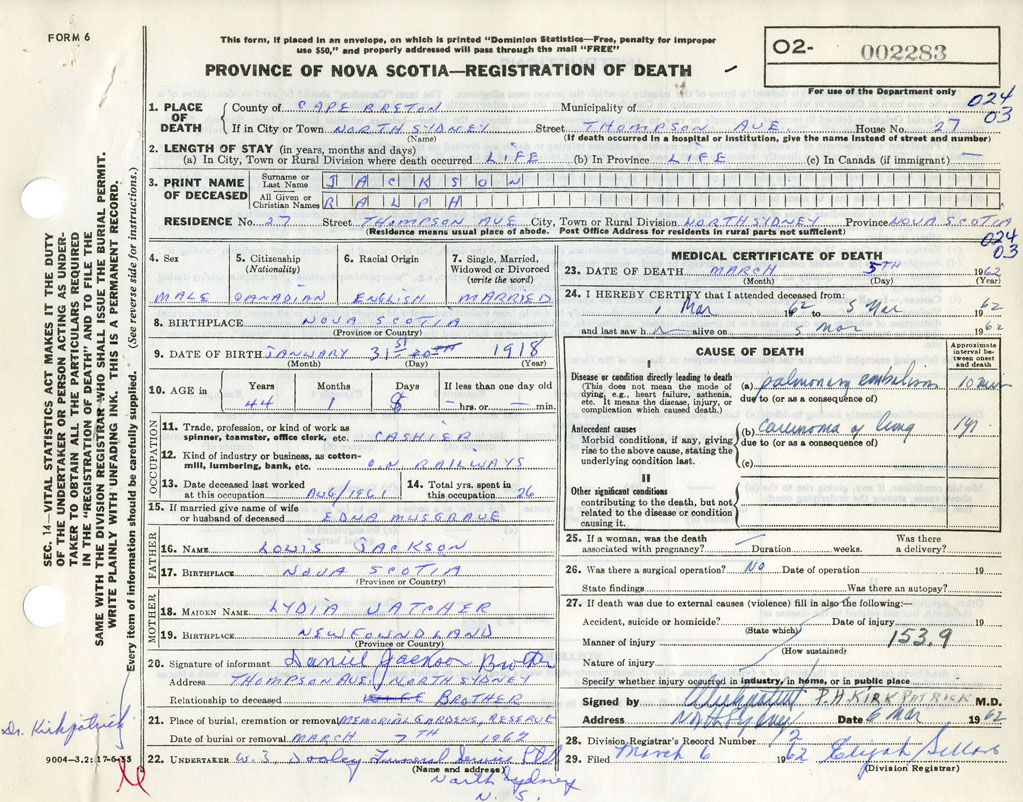 FORM 6
This form, if placed in an envelope, on which is printed "Dominion Statistics—Free, penalty for improper
use $50," and properly addressed will pass through the mail "FREE"
PROVINCE OF NOVA SCOTIA—REGISTRATION OF DEATH
02- 002283
For use of the Department only
024
03
1. PLACE OF DEATH
County of CAPE BRETON Municipality of
If in City or Town NORTH SYDNEY Street THOMPSON AVE. House No. 27
(Name) (If death occurred in a hospital or institution, give the name instead of street and number)
2. LENGTH OF STAY (in years, months and days)
(a) In City, Town or Rural Division where death occurred LIFE (b) In Province LIFE (c) In Canada (if immigrant) —
3. PRINT NAME OF DECEASED
Surname or Last Name JACKSON
All Given or Christian Names RALPH
RESIDENCE No. 27 Street THOMPSON AVE City, Town or Rural Division NORTH SYDNEY Province NOVA SCOTIA
(Residence means usual place of abode. Post Office Address for residents in rural parts not sufficient)
024
03
4. Sex
MALE
5. Citizenship
(Nationality)
CANADIAN
6. Racial Origin
ENGLISH
7. Single, Married,
Widowed or Divorced
(write the word)
MARRIED
8. BIRTHPLACE NOVA SCOTIA
(Province or Country)
9. DATE OF BIRTH JANUARY 31 ST 30TH 1918
(Month) (Day) (Year)
10. AGE in
Years Months Days If less than one day old
44 1 8 hrs. or — min.
OCCUPATION
11. Trade, profession, or kind of work as
spinner, teamster, office clerk, etc. CASHIER
12. Kind of industry or business, as cotton-
mill, lumbering, bank, etc. C.N. RAILWAYS
13. Date deceased last worked
at this occupation AUG/1961
14. Total yrs. spent in
this occupation 26
15. If married give name of wife
or husband of deceased EDNA MUSGRAVE
FATHER
16. NAME LOUIS JACKSON
17. BIRTHPLACE NOVA SCOTIA
(Province or Country)
MOTHER
18. MAIDEN NAME LYDIA VATCHER
19. BIRTHPLACE NEWFOUNDLAND
(Province or Country)
20. Signature of informant Daniel Jackson Brother
Address THOMPSON AVE. NORTH SYDNEY
Relationship to deceased BROTHER
21. Place of burial, cremation or removal MEMORIAL GARDENS, RESERVE
Date of burial or removal MARCH 7TH 1962
22. UNDERTAKER W. J. Dooley Funeral Service
(Name and address)
North Sydney
N. S.
MEDICAL CERTIFICATE OF DEATH
23. DATE OF DEATH MARCH 5TH 1962
(Month) (Day) (Year)
24. I HEREBY CERTIFY that I attended deceased from:
1 Mar 1962 to 5 Mar 1962
and last saw h alive on 5 Mar 1962
CAUSE OF DEATH
Approximate
interval be-
tween onset
and death
I
Disease or condition directly leading to death
(This does not mean the mode of
dying, e.g., heart failure, asthenia,
etc. It means the disease, injury, or
complication which caused death.)
(a) pulmonary embolism 10 min
due to (or as a consequence of)
Antecedent causes
Morbid conditions, if any, giving
rise to the above cause, stating the
underlying condition last.
(b) Carcinoma of lung 1 yr
due to (or as a consequence of)
(c)
II
Other significant conditions
contributing to the death, but not
related to the disease or condition
causing it.
25. If a woman, was the death
associated with pregnancy? — Duration weeks. Was there
a delivery?
26. Was there a surgical operation? No Date of operation 19
State findings Was there an autopsy?
27. If death was due to external causes (violence) fill in also the following:—
Accident, suicide or homicide? Date of injury 19
(State which)
Manner of injury 153.9
(How sustained)
Nature of injury
Specify whether injury occurred in industry, in home, or in public place
Signed by P.A. KIRKPATRICK M.D.
Address North Sydney Date 6 Mar 1962
28. Division Registrar's Record Number 12
29. Filed March 6 1962 Elijah Sellars
(Division Registrar)
SEC. 14—VITAL STATISTICS ACT MAKES IT THE DUTY
OF THE UNDERTAKER OR PERSON ACTING AS UNDER-
TAKER TO OBTAIN ALL THE PARTICULARS REQUIRED
IN THE "REGISTRATION OF DEATH" AND TO FILE THE
SAME WITH THE DIVISION REGISTRAR WHO SHALL ISSUE THE BURIAL PERMIT.
WRITE PLAINLY WITH UNFADING INK. THIS IS A PERMANENT RECORD.
Every item of information should be carefully supplied. (See reverse side for instructions.)
Dr. Kirkpatrick
9004—3,2: 17-6-55